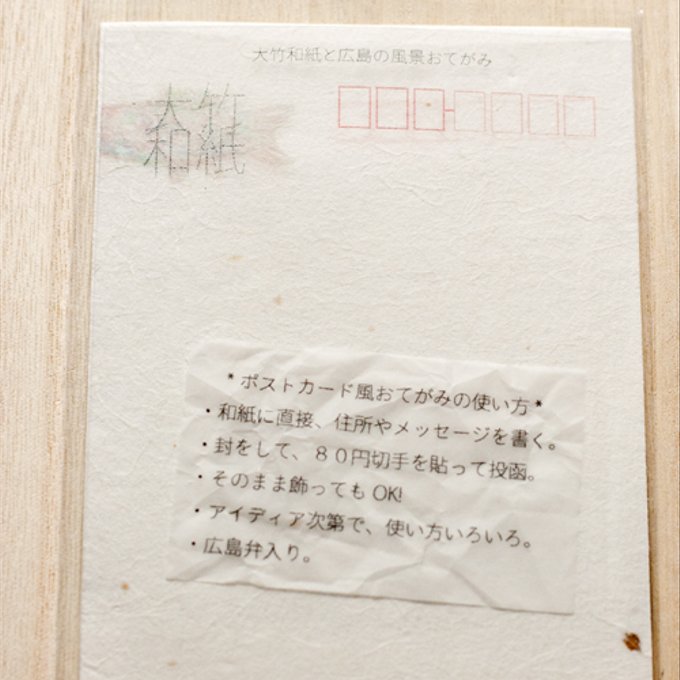 大竹和紙と広島の風景おてがみ
大竹
和紙
*ポストカード風おてがみの使い方*
・和紙に直接、住所やメッセージを書く。
・封をして、８０円切手を貼って投函。
・そのまま飾ってもOK!
・アイディア次第で、使い方いろいろ。
・広島弁入り。